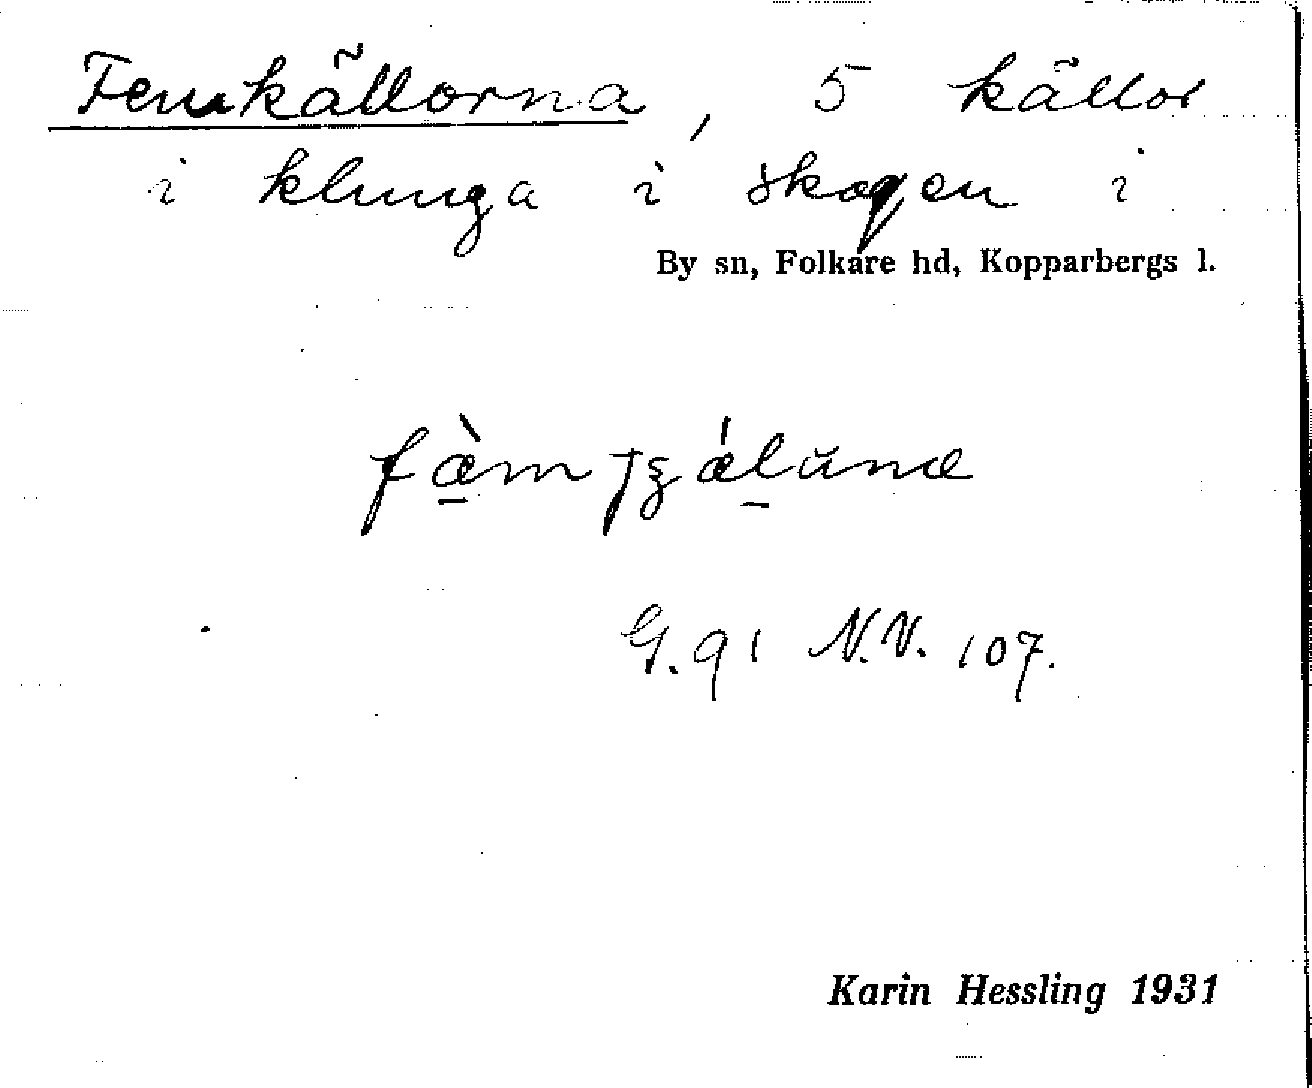 Femkällorna, 5 källor
i klunga i skogen i
By sn, Folkare hd, Kopparbergs l.
G. 91 N.V. 107.
Karin Hessling 1931